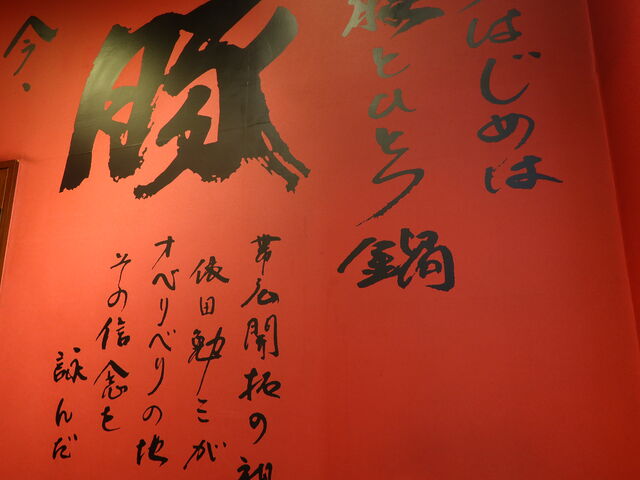 はじめは
豚とひとつ鍋
豚
今、
帯広開拓の祖
依田勉三が
オベリベリの地
その信念を
詠んだ